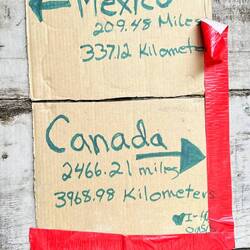 Mexico
209.48 Miles
337.12 Kilometers
Canada
2466.21 miles
3968.98 Kilometers